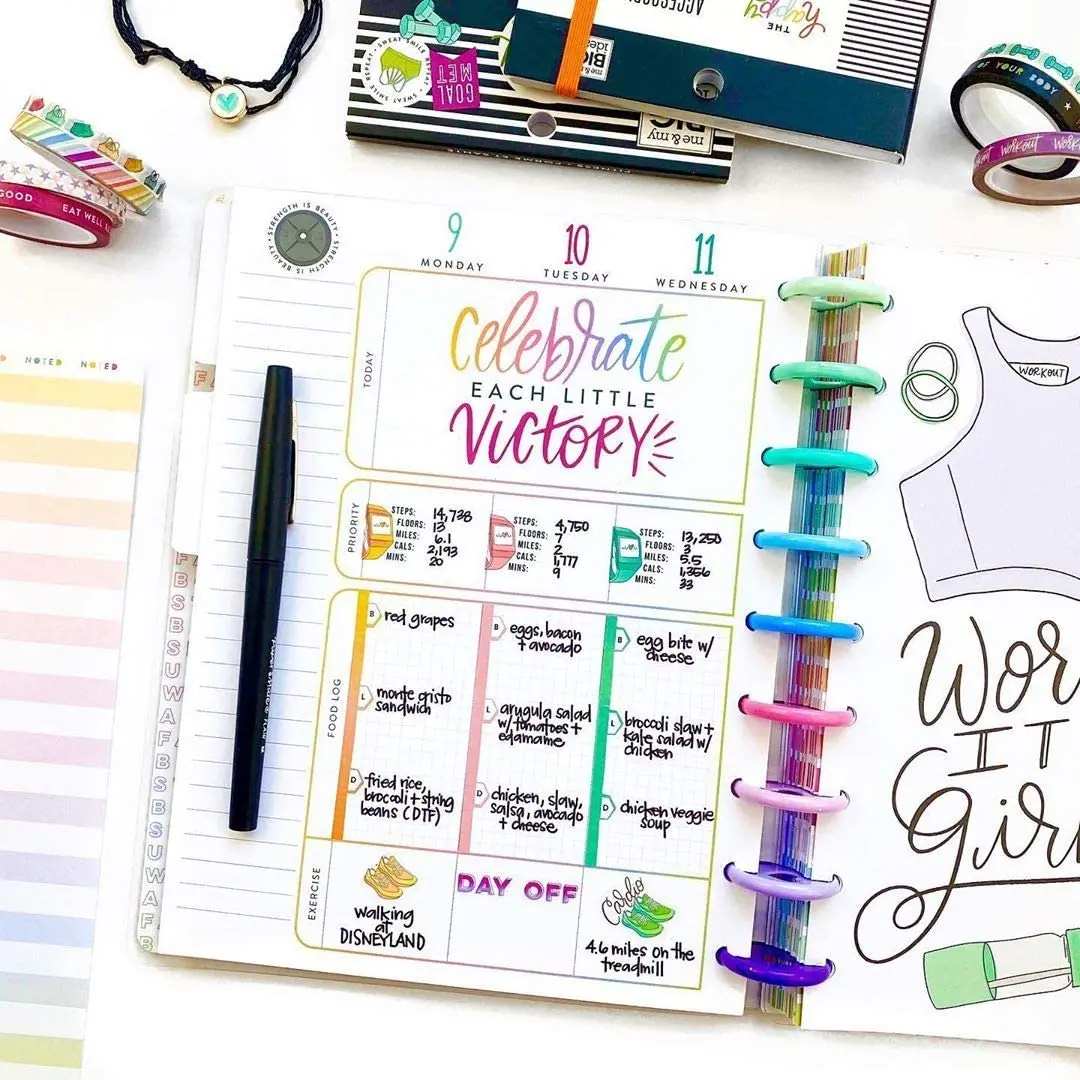 SWEAT · SMILE · REPEAT · SWEAT · SMILE · REPEAT
GOAL
MET
me & my
BIG
THE
happy
ACCESSORY
me & my
BIG
ideas
OF YOUR BODY
WORKOUT
WORK
GOOD
EAT WELL
NOTED NOTED
STRENGTH IS BEAUTY · STRENGTH IS BEAUTY
9
MONDAY
10
TUESDAY
11
WEDNESDAY
TODAY
Celebrate
EACH LITTLE
VICTORY
PRIORITY
STEPS: 14,738
FLOORS: 13
MILES: 6.1
CALS: 2,193
MINS: 20
STEPS: 4,750
FLOORS: 7
MILES: 2
CALS: 1,777
MINS: 9
STEPS: 13,250
FLOORS: 3
MILES: 5.5
CALS: 1,356
MINS: 33
FOOD LOG
B red grapes
L monte cristo
sandwich
D fried rice,
broccoli + string
beans (DTF)
B eggs, bacon
+ avocado
L arugula salad
w/ tomatoes +
edamame
D chicken, slaw,
salsa, avocado
+ cheese
B egg bite w/
cheese
L broccoli slaw +
kale salad w/
chicken
D chicken veggie
soup
EXERCISE
walking
at
DISNEYLAND
DAY OFF
Cardio
4.6 miles on the
treadmill
F
B
S
B
S
U
W
A
F
B
S
B
S
U
W
A
F
B
WORKOUT
IT